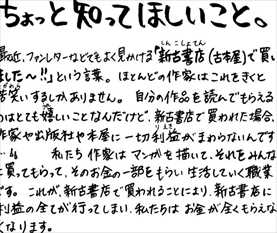 ちょっと知ってほしいこと。
最近、ファンレターなどでもよく見かける「新古書店(古本屋)で買い
しんこしょてん
ました〜!!」という言葉。ほとんどの作家はこれをきくと
苦笑いするしかありません。自分の作品を読んでもらえる
のはとても嬉しいことなんだけど、新古書店で買われた場合、
作家や出版社や本屋に一切利益がまわらないんです
りえき
…。私たち作家はマンガを描いて、それをみんな
に買ってもらって、そのお金の一部をもらい生活していく職業
です。これが、新古書店で買われることにより、新古書店に
利益の全てが行ってしまい、私たちはお金が全くもらえな
くなります。